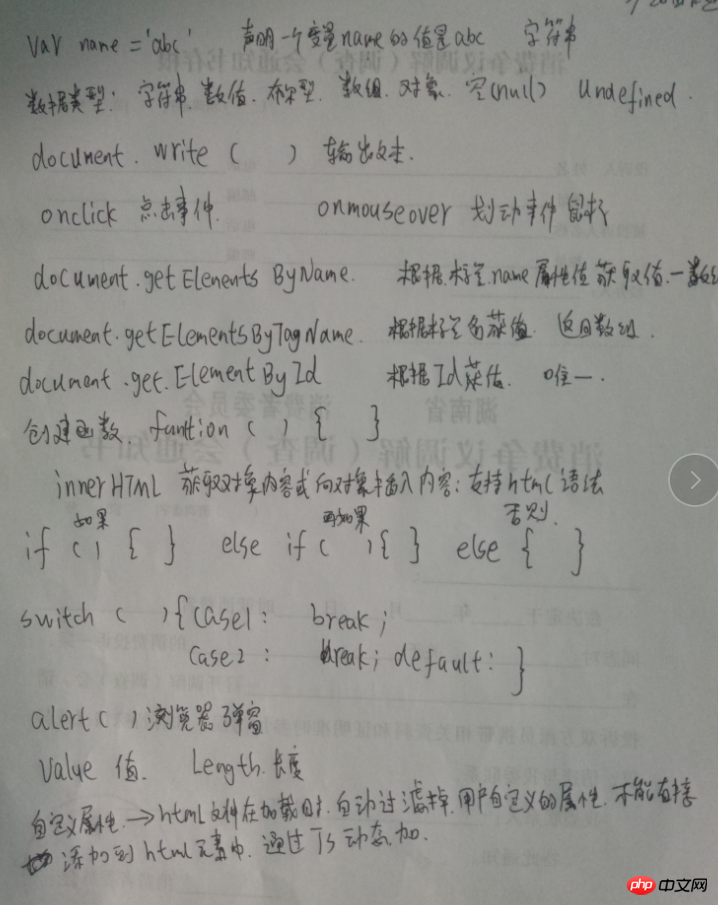 var name = 'abc' 声明一个变量name的值是abc 字符串
数据类型: 字符串. 数值. 布尔型. 数组. 对象. 空(null) undefined.
document. write ( ) 输出文本.
onclick 点击事件. onmouseover 划动事件 鼠标
document.getElenents ByName. 根据.标签.name属性值获取值.一数组
document.getElementsByTagName. 根据标签名获值. 返回数组.
document.get.Element By Id 根据Id获值. 唯一.
创建函数. funtion ( ) { }
innerHTML 获取对象内容或向对象插入内容: 支持html语法
如果 再如果 否则
if ( ) { } else if ( ) { } else { }
switch ( ) { case1: break;
case2: break; default: }
alert ( ) 浏览器弹窗
Value 值. Length. 长度
自定义属性. → html文件在加载时. 自动过滤掉. 用户自定义的属性. 不能直接
添加到html元素中. 通过JS动态加.
消费争议调解(调查)会通知书
php 中文网